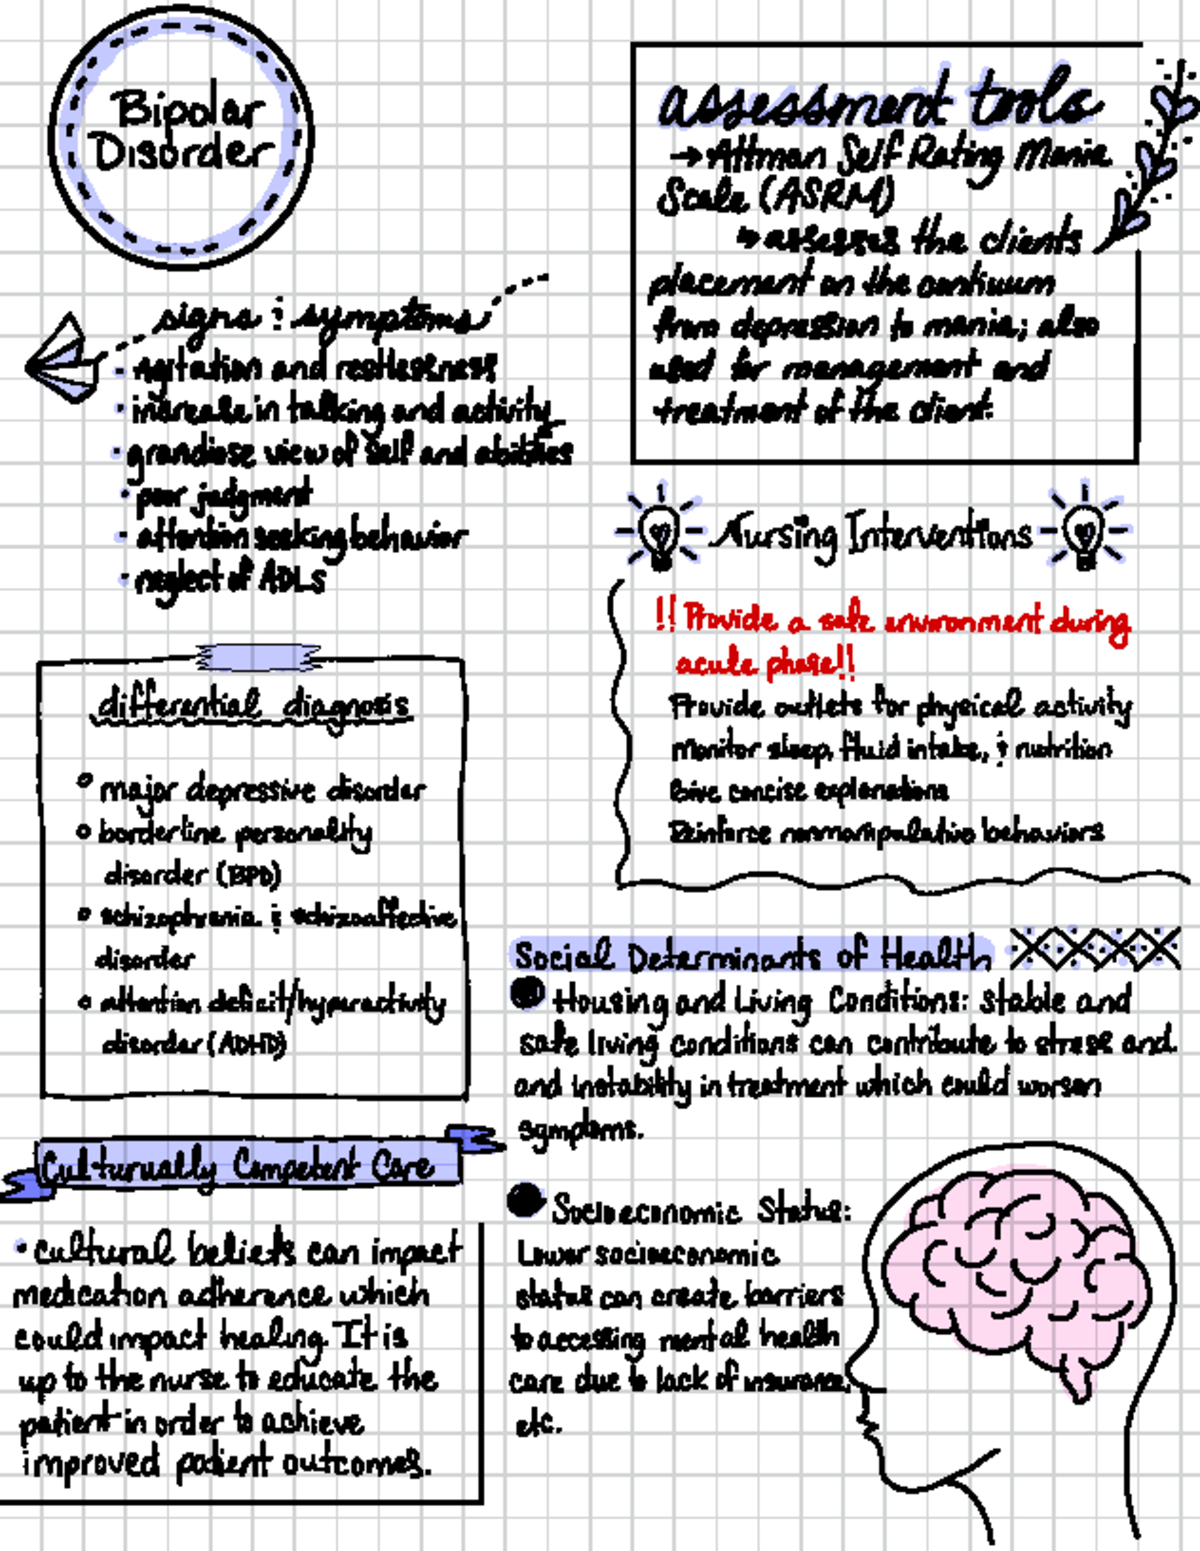 Bipolar
Disorder
signs & symptoms
· agitation and restlessness
· increase in talking and activity
· grandiose view of self and abilities
· poor judgment
· attention seeking behavior
· neglect of ADLs
differential diagnosis
° major depressive disorder
° borderline personality
disorder (BPD)
° schizophrenia & schizoaffective
disorder
° attention deficit/hyperactivity
disorder (ADHD)
Culturually Competent Care
· cultural beliefs can impact
medication adherence which
could impact healing. It is
up to the nurse to educate the
patient in order to achieve
improved patient outcomes.
assessment tools
→ Altman Self Rating Mania
Scale (ASRM)
↳ assesses the clients
placement on the continuum
from depression to mania; also
used for management and
treatment of the client.
Nursing Interventions
!! Provide a safe environment during
acute phase!!
Provide outlets for physical activity
monitor sleep, fluid intake, & nutrition
Give concise explanations
Reinforce nonmanipulative behaviors
Social Determinants of Health
Housing and Living Conditions: stable and
safe living conditions can contribute to stress and
and instability in treatment which could worsen
symptoms.
Socioeconomic Status:
Lower socioeconomic
status can create barriers
to accessing mental health
care due to lack of insurance,
etc.